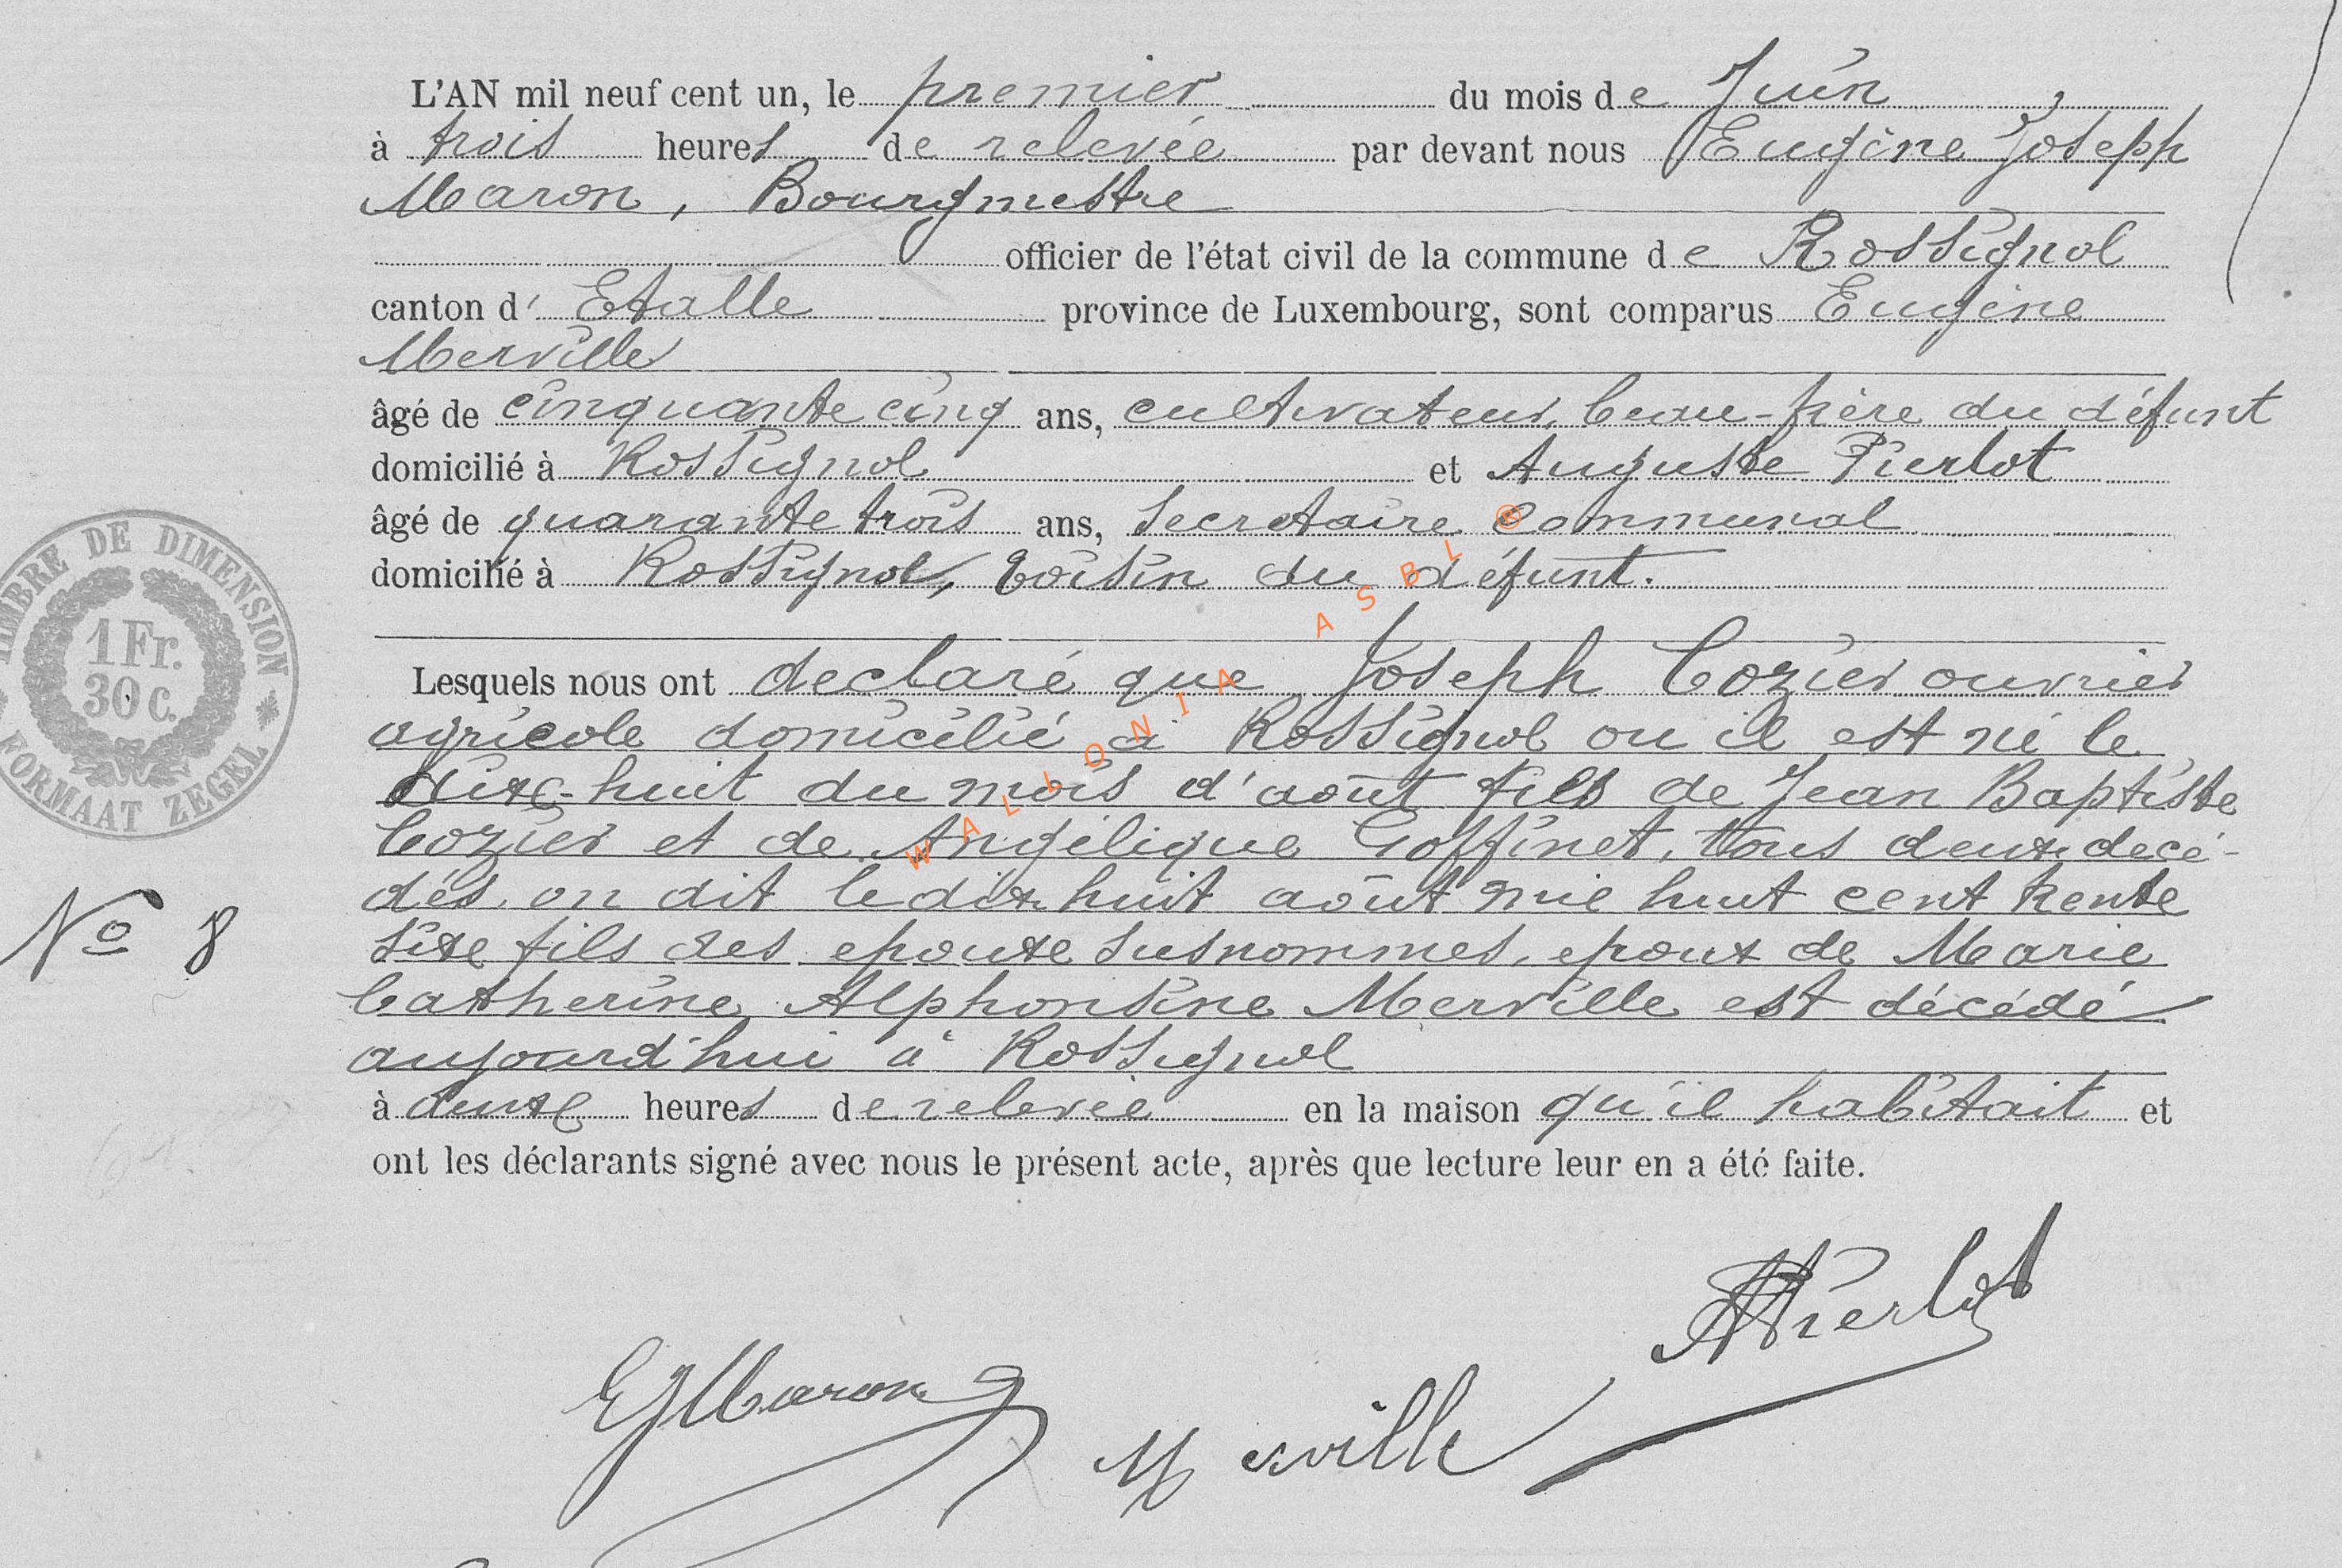 L'AN mil neuf cent un, le premier du mois de Juin
à trois heures de relevée par devant nous Eugène Joseph
Maron, Bourgmestre
officier de l'état civil de la commune de Rossignol
canton d' Etalle province de Luxembourg, sont comparus Eugène
Merville
âgé de cinquante cinq ans, cultivateur, beau-frère du défunt
domicilié à Rossignol et Auguste Pierlot
âgé de quarante trois ans, secretaire communal
domicilié à Rossignol, voisin du défunt.
Lesquels nous ont declaré que Joseph Cozier ouvrier
agricole domicilié à Rossignol ou il est né le
dix-huit du mois d'août fils de Jean Baptiste
Cozier et de Angélique Goffinet, tous deux decé-
dés, on dit le dix huit août mil huit cent trente
six fils des epoux susnommés, epoux de Marie
Catherine Alphonsine Merville est décédé
aujourd'hui à Rossignol
à deux heures de relevée en la maison qu'il habitait et
ont les déclarants signé avec nous le présent acte, après que lecture leur en a été faite.
TIMBRE DE DIMENSION
1 Fr.
30 C.
FORMAAT ZEGEL
No 8
APierlot
EJMaron
Merville
WALLONIA ASBL ®